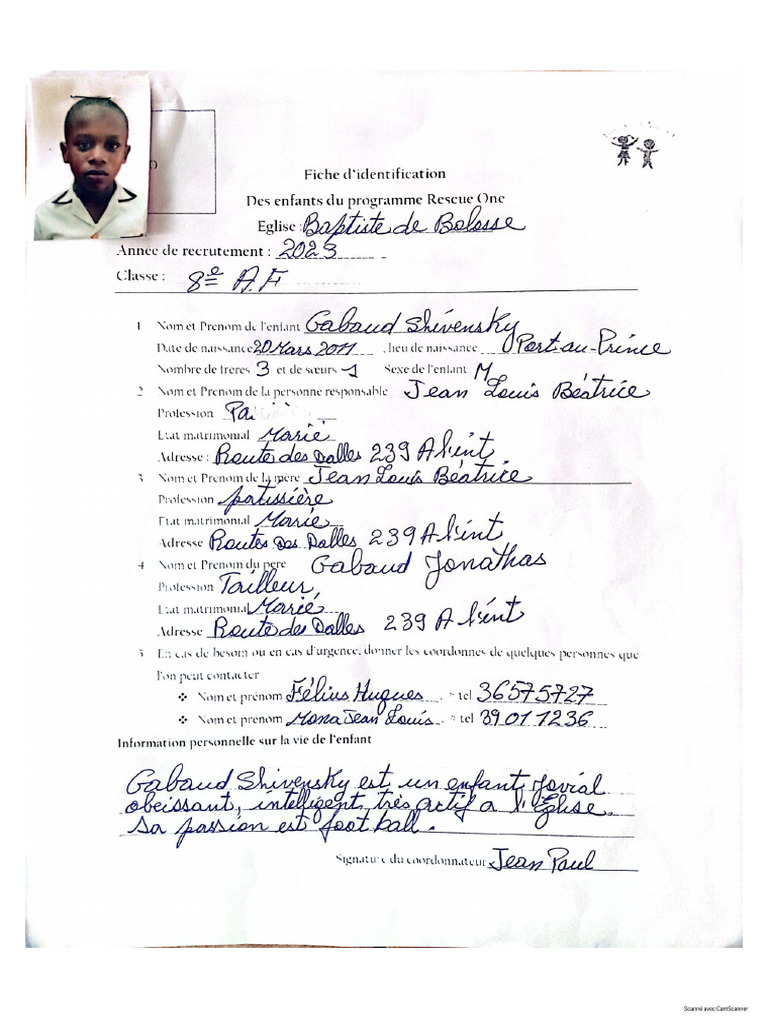 Fiche d'identification
Des enfants du programme Rescue One
Eglise : Baptiste de Bolosse
Année de recrutement : 2023
Classe : 8e A.F
1 Nom et Prenom de l'enfant Gabaud Shivensky
Date de naissance 20 Mars 2011 , lieu de naissance Port-au-Prince
Nombre de freres 3 et de sœurs 1 Sexe de l'enfant M
2 Nom et Prenom de la personne responsable Jean Louis Béatrice
Profession Pa
Etat matrimonial Marié
Adresse : Route des Dalles 239 A
3 Nom et Prenom de la mere Jean Louis Béatrice
Profession patissière
Etat matrimonial Marié
Adresse Routes Des Dalles 239 A
4 Nom et Prenom du pere Gabaud Jonathas
Profession Tailleur,
Etat matrimonial Marié
Adresse Route des Dalles 239 A
5 En cas de besoin ou en cas d'urgence, donner les coordonnes de quelques personnes que
l'on peut contacter
❖ Nom et prénom Félius Hugues . * tel 36575727
❖ Nom et prénom Mona Jean Louis . * tel 39011236
Information personnelle sur la vie de l'enfant
Gabaud Shivensky est un enfant jovial
obeissant, intelligent, très actif a l'Eglise.
Sa passion est foot ball.
Signature du coordonnateur Jean Paul
Scanné avec CamScanner